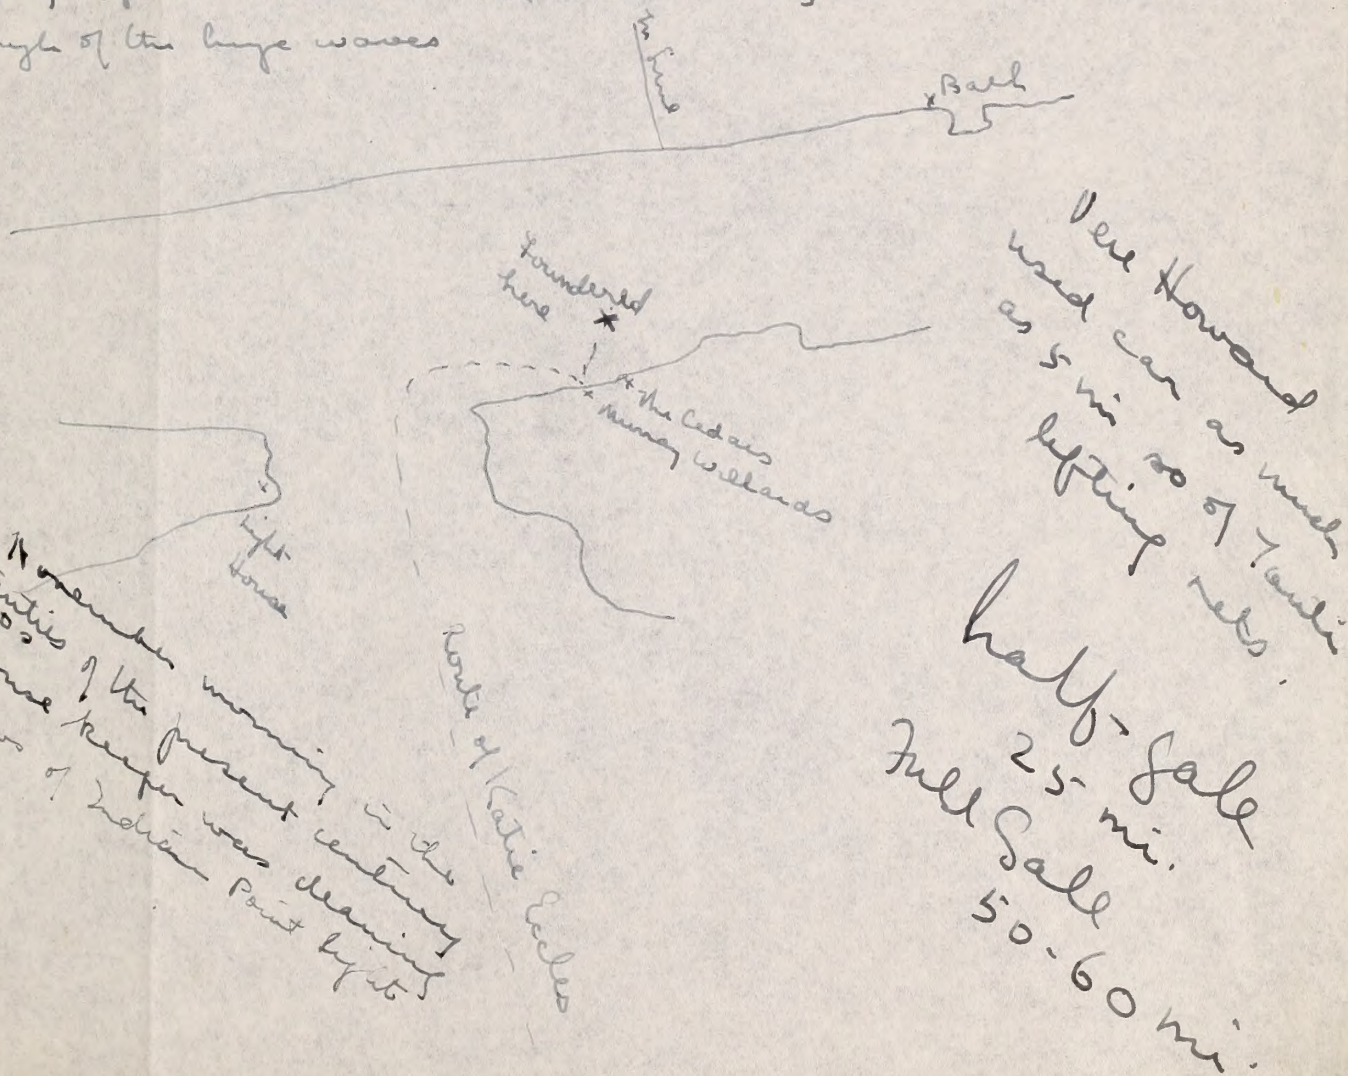 of the huge waves
Line
Bath
Foundered
here
x The Cedars
x Murray Willards
Light
House
Route of Katie Eccles
November morning in the
of the present century
keeper was cleaning
of Indian Point light
Vere Howard
used car as much
as 5 mi so of
lifting nets.
half-Gale
25 mi.
Full Gale
50-60 mi.